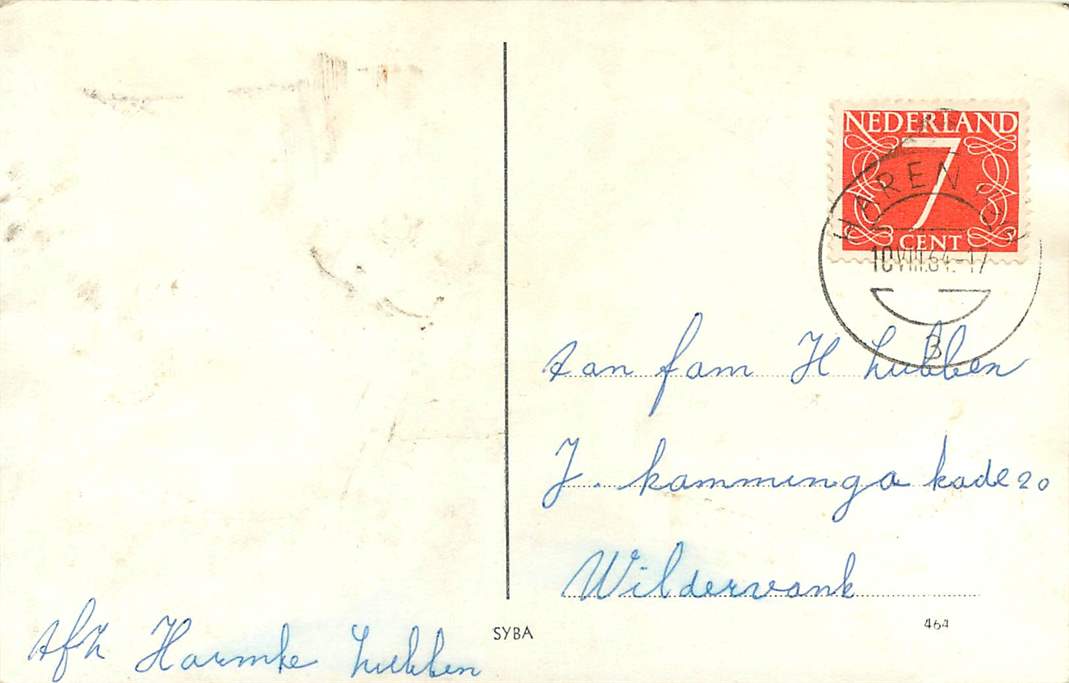 NEDERLAND
7
CENT
HAREN
10 VIII.64.-17
3
aan fam H Lubben
J. kamminga kade 20
Wildervank
SYBA
464
Afz Harmke Lubben